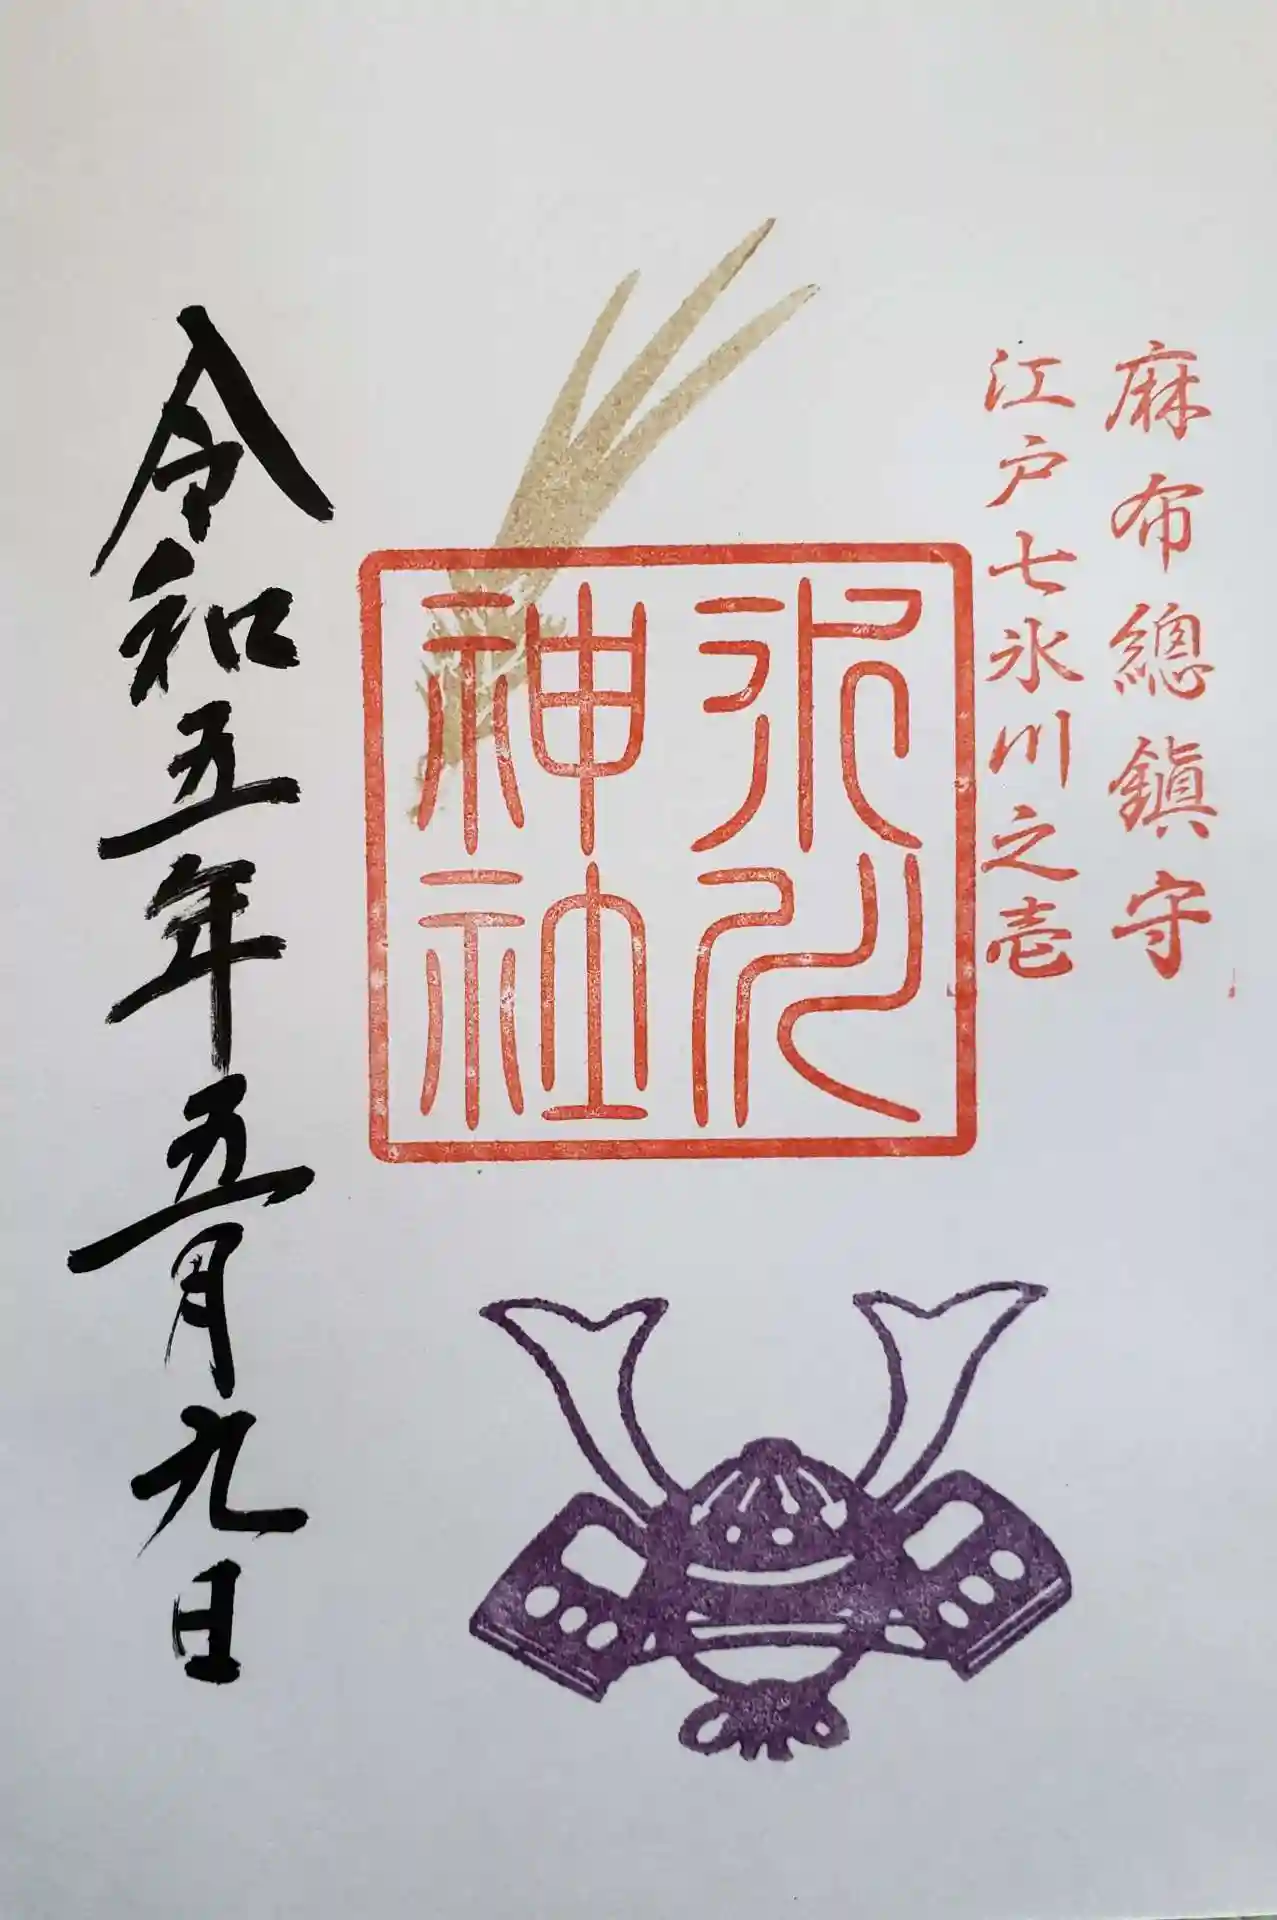 麻布總鎭守
江戸七氷川之壱
氷川
神社
令和五年五月九日